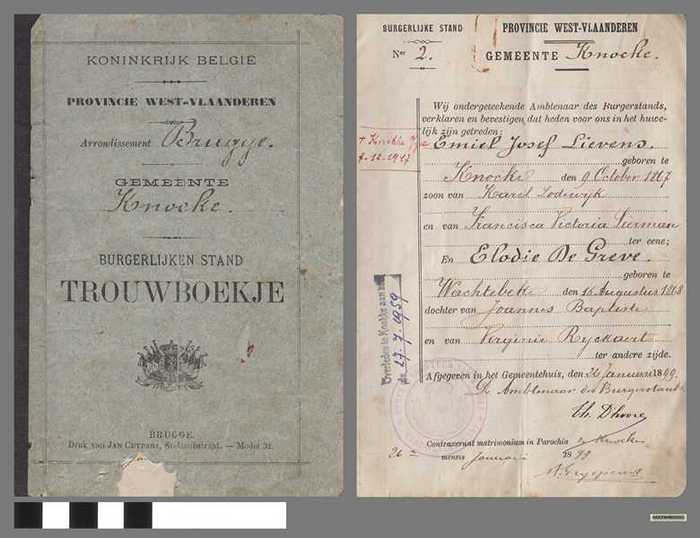 KONINKRIJK BELGIË
PROVINCIE WEST-VLAANDEREN
Arrondissement Brugge.
GEMEENTE
Knocke.
BURGERLIJKEN STAND
TROUWBOEKJE
BRUGGE.
Druk van Jan Cuypers, St-Jansstraat. — Model 31.
BURGERLIJKE STAND
Nr 2.
PROVINCIE WEST-VLAANDEREN
GEMEENTE Knocke.
Wij ondergeteekende Ambtenaar des Burgerstands,
verklaren en bevestigen dat heden voor ons in het huwe-
lijk zijn getreden:
Emiel Josef Lievens.
geboren te
Knocke den 9 October 1867
zoon van Karel Lodewijk
en van Francisca Victoria
ter eene;
En Elodie De Greve.
geboren te
Wachtebeke den 16 Augustus 1868
dochter van Joannes Baptiste
en van Virginie Ryckaert
ter andere zijde.
Afgegeven in het Gemeentehuis, den 26 Januari 1899.
De Ambtenaar des Burgerstands
Ch. D'hoore
Contraxerunt matrimonium in Parochia de Knocke
26a mensis Januarii 1899
+ Knocke
7.12.1917
Overleden te Knokke aan zee
de 27.7.1959